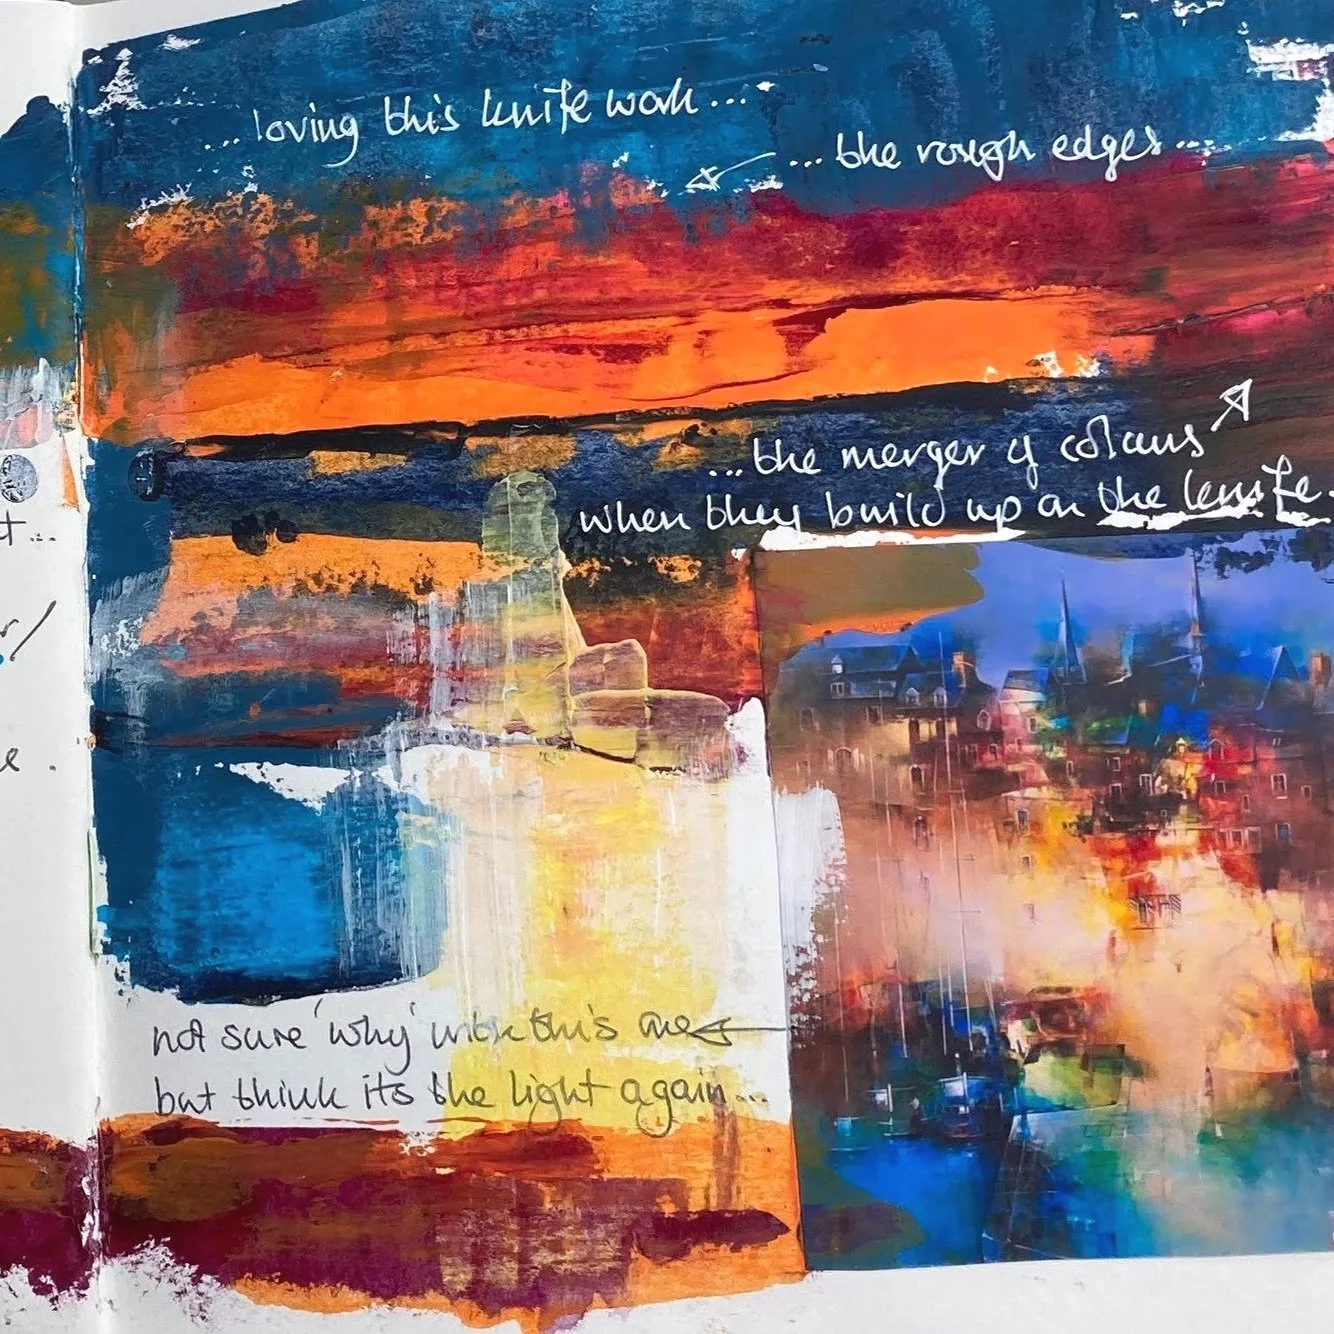 ...loving this knife work...
...the rough edges...
...the merger of colours
when they build up on the knife.
t...
r/
e.
not sure 'why' with this one
but think its the light again...